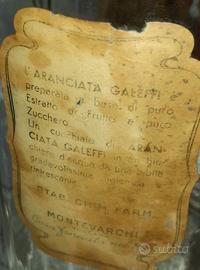 L'ARANCIATA GALEFFI
preparata a base di puro
Estratto di Frutto e puro
Zucchero
Un cucchiaio di ARAN-
CIATA GALEFFI in un bic-
chiere d'acqua dà una bibita
gradevolissima igienica
rinfrescante
STAB. CHIM. FARM.
MONTEVARCHI
subito